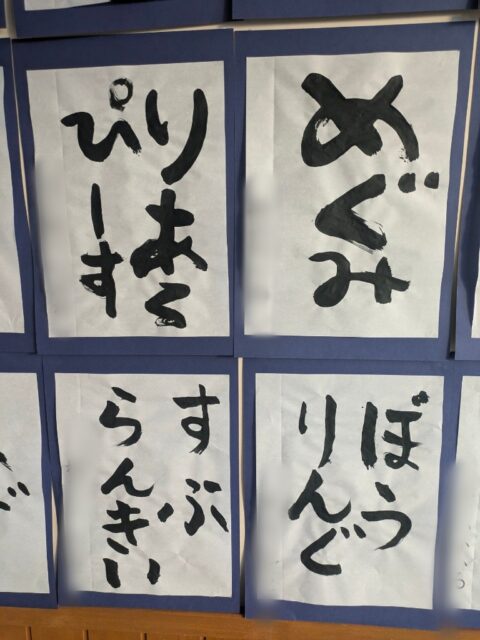 めぐみ
りある
ぴーす
ぼう
りんぐ
すぷ
らんきい